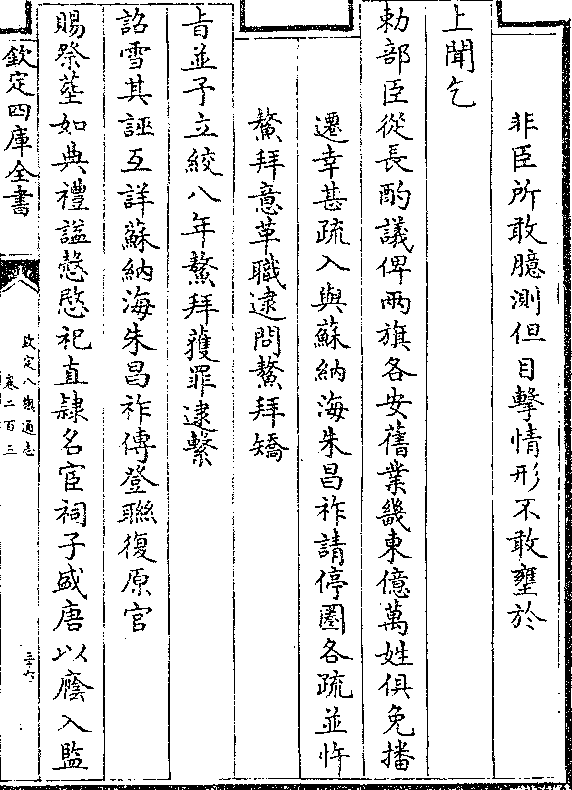 非臣所敢臆測但目擊情形不敢壅於
上聞乞
勅部臣從長酌議俾兩旗各安舊業畿東億萬姓俱免播
遷幸甚疏入與蘇納海朱昌祚請停圈各疏並忤
鰲拜意革職逮問鰲拜矯
旨並予立絞八年鰲拜獲罪逮繫
詔雪其誣互詳蘇納海朱昌祚傳登聯復原官
賜祭塟如典禮謚慤愍祀直隸名宦祠子盛唐以廕入監
欽定四庫全書
欽定八旗通志
卷二百三
三十六